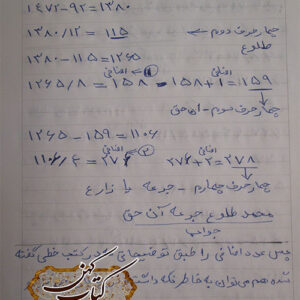 ۱۴۷۲-۹۲=۱۳۸۰
۱۳۸۰/۱۲ = ۱۱۵ → چهار حرف دوم
طلوع
۱۳۸۰-۱۱۵=۱۲۶۵
اضافی اضافی
۱۲۶۵/۸ = ۱۵۸ - ۱۵۸+۱=۱۵۹
چهار حرف سوم - آن حق
۱۲۶۵ - ۱۵۹ = ۱۱۰۶
اضافی اضافی
۱۱۰۶/۴ = ۲۷۶ ۲۷۶+۲=۲۷۸
چهار حرف چهارم - جرعه یا زارع
محمد طلوع جرعه آن حق
جواب
پس عدد اضافی را طبق توضیحاتی که در کتب خطی گفته
شده هم می‌توان به خاطر نگه داشت
کتاب کهن